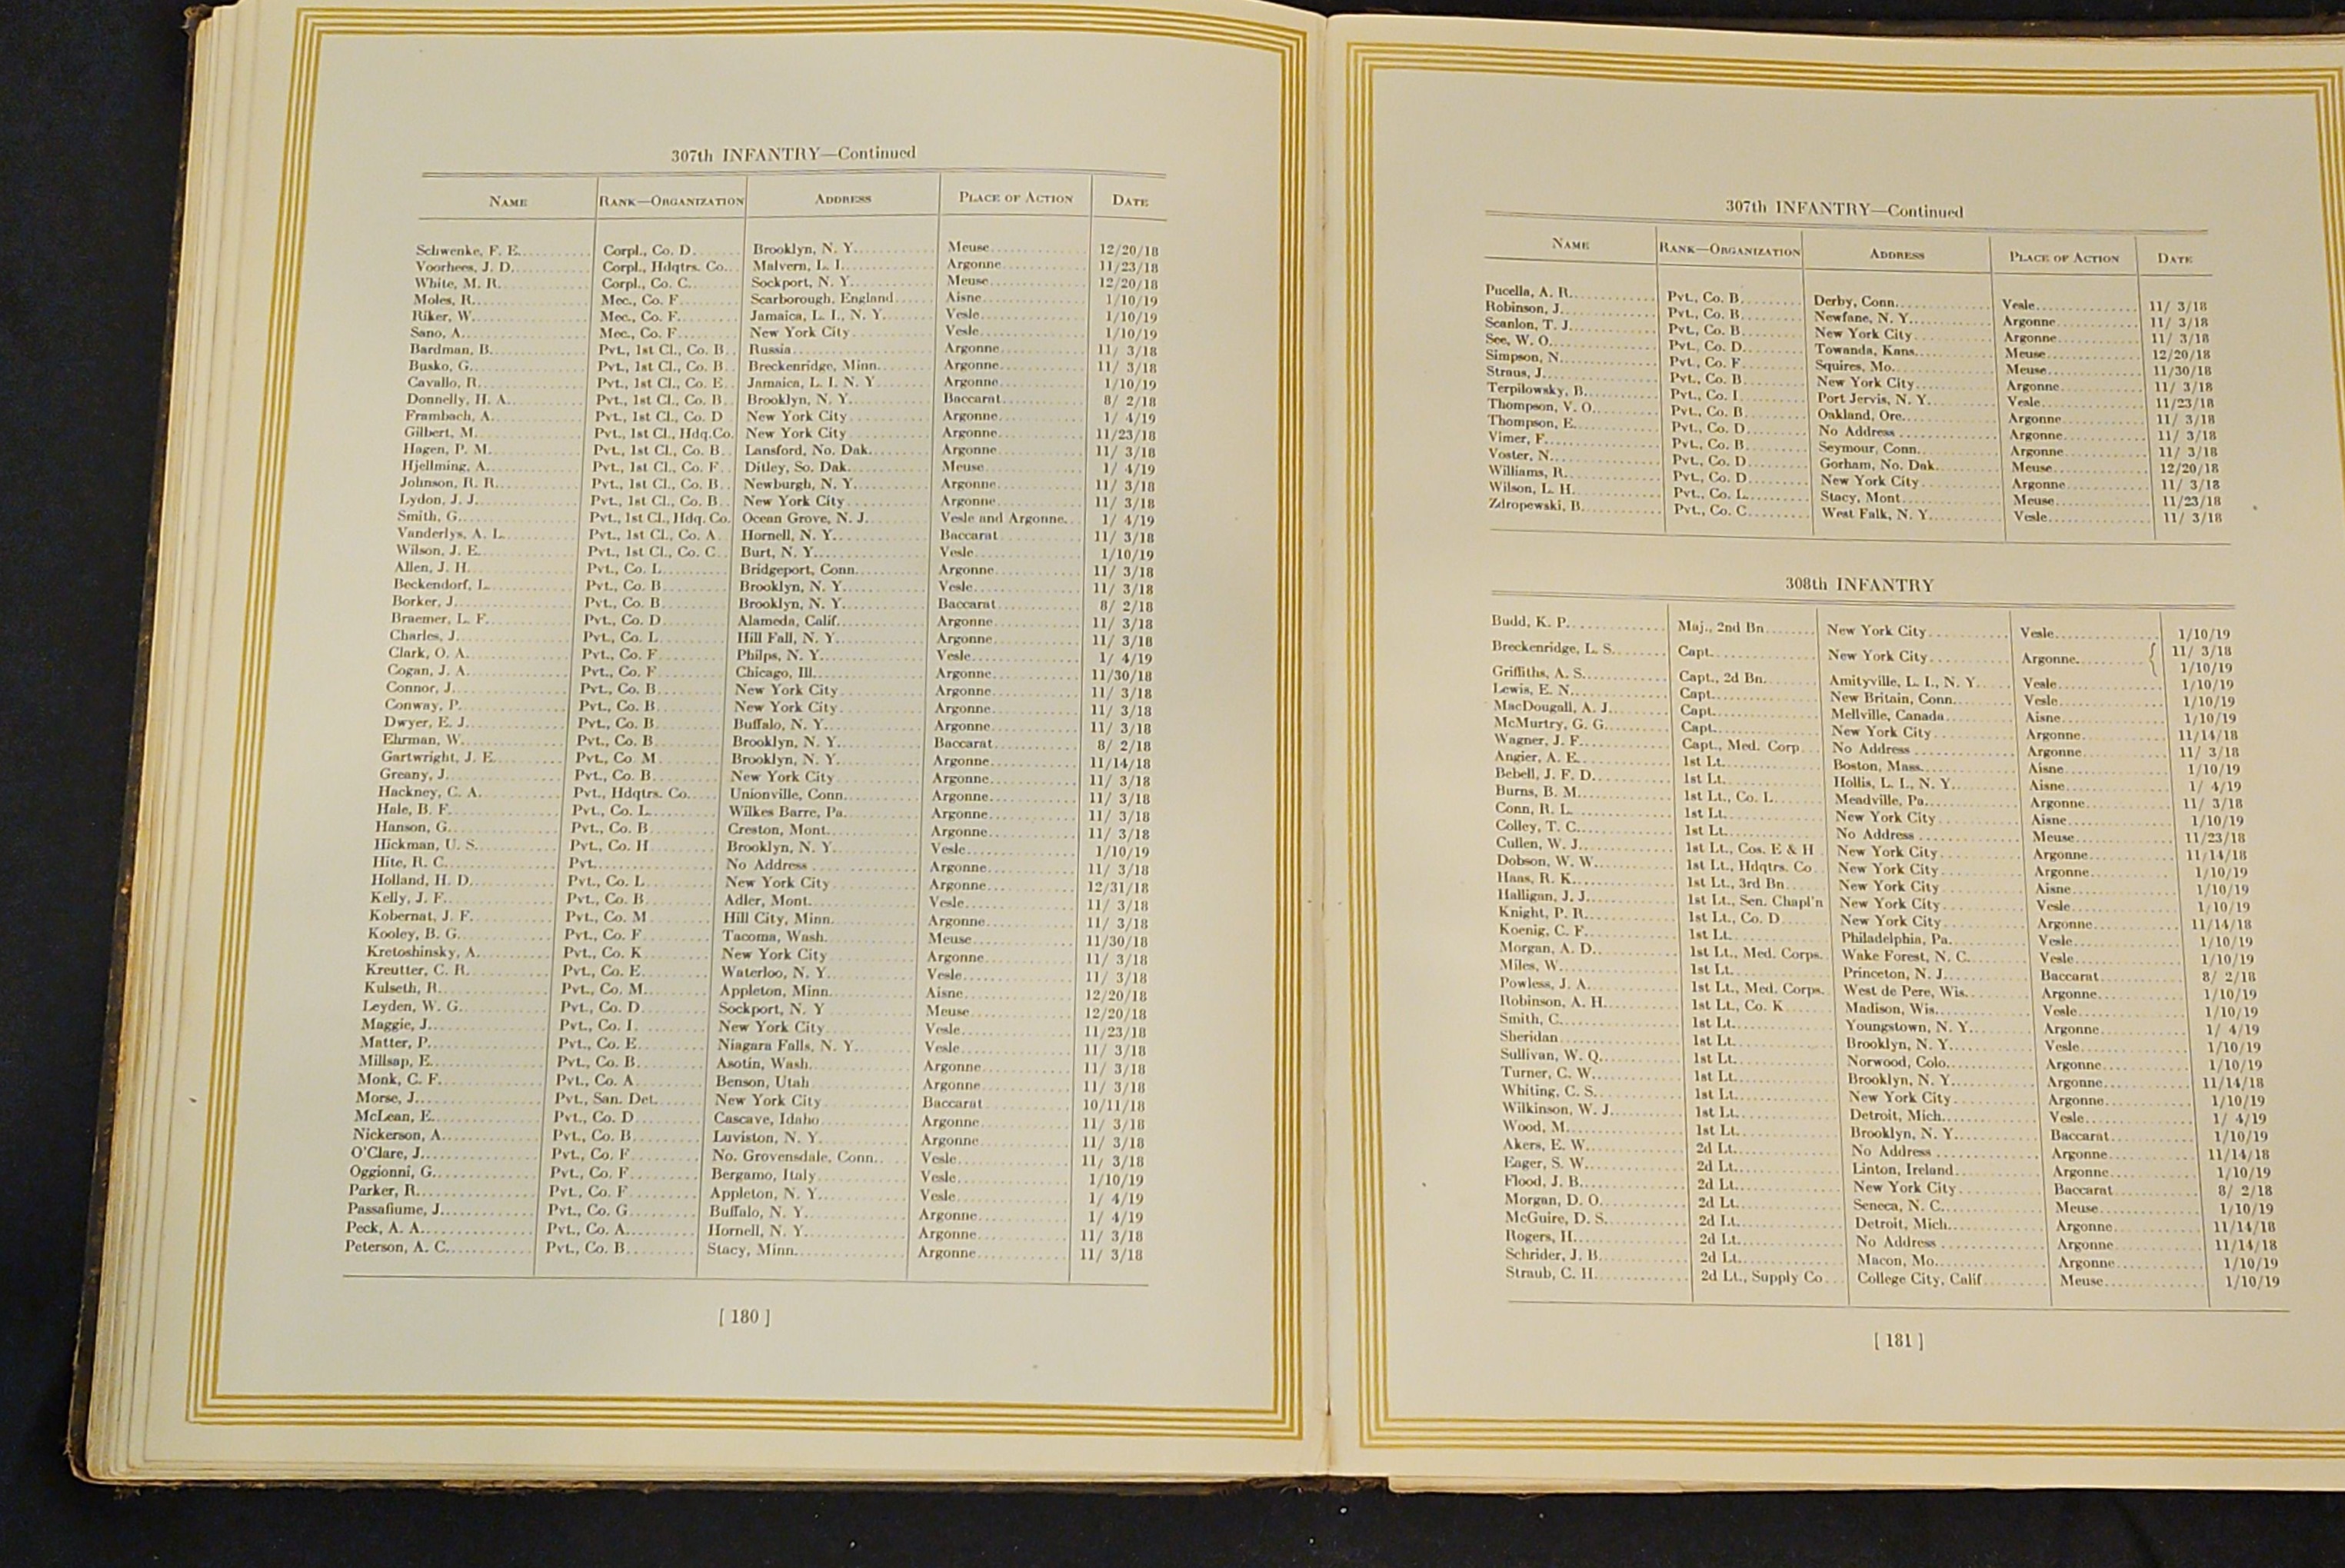 307th INFANTRY—Continued
NAME RANK—ORGANIZATION ADDRESS PLACE OF ACTION DATE
Schwenke, F. E. Corpl., Co. D. Brooklyn, N. Y. Meuse 12/20/18
Voorhees, J. D. Corpl., Hdqtrs. Co. Malvern, L. I. Argonne 11/23/18
White, M. R. Corpl., Co. C. Sockport, N. Y. Meuse 12/20/18
Moles, R. Mec., Co. F. Scarborough, England Aisne 1/10/19
Riker, W. Mec., Co. F. Jamaica, L. I., N. Y. Vesle 1/10/19
Sano, A. Mec., Co. F. New York City Vesle 1/10/19
Bardman, B. Pvt., 1st Cl., Co. B. Russia Argonne 11/ 3/18
Busko, G. Pvt., 1st Cl., Co. B. Breckenridge, Minn. Argonne 11/ 3/18
Cavallo, R. Pvt., 1st Cl., Co. E. Jamaica, L. I. N. Y. Argonne 1/10/19
Donnelly, H. A. Pvt., 1st Cl., Co. B. Brooklyn, N. Y. Baccarat 8/ 2/18
Frambach, A. Pvt., 1st Cl., Co. D New York City Argonne 1/ 4/19
Gilbert, M. Pvt., 1st Cl., Hdq.Co. New York City Argonne 11/23/18
Hagen, P. M. Pvt., 1st Cl., Co. B. Lansford, No. Dak. Argonne 11/ 3/18
Hjellming, A. Pvt., 1st Cl., Co. F. Ditley, So. Dak. Meuse 1/ 4/19
Johnson, R. R. Pvt., 1st Cl., Co. B. Newburgh, N. Y. Argonne 11/ 3/18
Lydon, J. J. Pvt., 1st Cl., Co. B. New York City Argonne 11/ 3/18
Smith, G. Pvt., 1st Cl., Hdq. Co. Ocean Grove, N. J. Vesle and Argonne 1/ 4/19
Vanderlys, A. L. Pvt., 1st Cl., Co. A. Hornell, N. Y. Baccarat 11/ 3/18
Wilson, J. E. Pvt., 1st Cl., Co. C. Burt, N. Y. Vesle 1/10/19
Allen, J. H. Pvt., Co. L. Bridgeport, Conn. Argonne 11/ 3/18
Beckendorf, L. Pvt., Co. B. Brooklyn, N. Y. Vesle 11/ 3/18
Borker, J. Pvt., Co. B. Brooklyn, N. Y. Baccarat 8/ 2/18
Braemer, L. F. Pvt., Co. D. Alameda, Calif. Argonne 11/ 3/18
Charles, J. Pvt., Co. L. Hill Fall, N. Y. Argonne 11/ 3/18
Clark, O. A. Pvt., Co. F. Philps, N. Y. Vesle 1/ 4/19
Cogan, J. A. Pvt., Co. F. Chicago, Ill. Argonne 11/30/18
Connor, J. Pvt., Co. B. New York City Argonne 11/ 3/18
Conway, P. Pvt., Co. B. New York City Argonne 11/ 3/18
Dwyer, E. J. Pvt., Co. B. Buffalo, N. Y. Argonne 11/ 3/18
Ehrman, W. Pvt., Co. B. Brooklyn, N. Y. Baccarat 8/ 2/18
Gartwright, J. E. Pvt., Co. M. Brooklyn, N. Y. Argonne 11/14/18
Greany, J. Pvt., Co. B. New York City Argonne 11/ 3/18
Hackney, C. A. Pvt., Hdqtrs. Co. Unionville, Conn. Argonne 11/ 3/18
Hale, B. F. Pvt., Co. L. Wilkes Barre, Pa. Argonne 11/ 3/18
Hanson, G. Pvt., Co. B. Creston, Mont. Argonne 11/ 3/18
Hickman, U. S. Pvt., Co. H. Brooklyn, N. Y. Vesle 1/10/19
Hite, R. C. Pvt. No Address Argonne 11/ 3/18
Holland, H. D. Pvt., Co. L. New York City Argonne 12/31/18
Kelly, J. F. Pvt., Co. B. Adler, Mont. Vesle 11/ 3/18
Kobernat, J. F. Pvt., Co. M. Hill City, Minn. Argonne 11/ 3/18
Kooley, B. G. Pvt., Co. F. Tacoma, Wash. Meuse 11/30/18
Kretoshinsky, A. Pvt., Co. K. New York City Argonne 11/ 3/18
Kreutter, C. R. Pvt., Co. E. Waterloo, N. Y. Vesle 11/ 3/18
Kulseth, R. Pvt., Co. M. Appleton, Minn. Aisne 12/20/18
Leyden, W. G. Pvt., Co. D. Sockport, N. Y. Meuse 12/20/18
Maggie, J. Pvt., Co. I. New York City Vesle 11/23/18
Matter, P. Pvt., Co. E. Niagara Falls, N. Y. Vesle 11/ 3/18
Millsap, E. Pvt., Co. B. Asotin, Wash. Argonne 11/ 3/18
Monk, C. F. Pvt., Co. A. Benson, Utah Argonne 11/ 3/18
Morse, J. Pvt., San. Det. New York City Baccarat 10/11/18
McLean, E. Pvt., Co. D. Cascave, Idaho Argonne 11/ 3/18
Nickerson, A. Pvt., Co. B. Luviston, N. Y. Argonne 11/ 3/18
O'Clare, J. Pvt., Co. F. No. Grovensdale, Conn. Vesle 11/ 3/18
Oggionni, G. Pvt., Co. F. Bergamo, Italy Vesle 1/10/19
Parker, R. Pvt., Co. F. Appleton, N. Y. Vesle 1/ 4/19
Passafiume, J. Pvt., Co. G. Buffalo, N. Y. Argonne 1/ 4/19
Peck, A. A. Pvt., Co. A. Hornell, N. Y. Argonne 11/ 3/18
Peterson, A. C. Pvt., Co. B. Stacy, Minn. Argonne 11/ 3/18
[ 180 ]
307th INFANTRY—Continued
NAME RANK—ORGANIZATION ADDRESS PLACE OF ACTION DATE
Pucella, A. R. Pvt., Co. B. Derby, Conn. Vesle 11/ 3/18
Robinson, J. Pvt., Co. B. Newfane, N. Y. Argonne 11/ 3/18
Scanlon, T. J. Pvt., Co. B. New York City Argonne 11/ 3/18
See, W. O. Pvt., Co. D. Towanda, Kans. Meuse 12/20/18
Simpson, N. Pvt., Co. F. Squires, Mo. Meuse 11/30/18
Straus, J. Pvt., Co. B. New York City Argonne 11/ 3/18
Terpilowsky, B. Pvt., Co. I. Port Jervis, N. Y. Vesle 11/23/18
Thompson, V. O. Pvt., Co. B. Oakland, Ore. Argonne 11/ 3/18
Thompson, E. Pvt., Co. D. No Address Argonne 11/ 3/18
Vimer, F. Pvt., Co. B. Seymour, Conn. Argonne 11/ 3/18
Voster, N. Pvt., Co. D. Gorham, No. Dak. Meuse 12/20/18
Williams, R. Pvt., Co. D. New York City Argonne 11/ 3/18
Wilson, L. H. Pvt., Co. L. Stacy, Mont. Meuse 11/23/18
Zdropewski, B. Pvt., Co. C. West Falk, N. Y. Vesle 11/ 3/18
308th INFANTRY
Budd, K. P. Maj., 2nd Bn. New York City Vesle 1/10/19
Breckenridge, L. S. Capt. New York City Argonne { 11/ 3/18
1/10/19
Griffiths, A. S. Capt., 2d Bn. Amityville, L. I., N. Y. Vesle 1/10/19
Lewis, E. N. Capt. New Britain, Conn. Vesle 1/10/19
MacDougall, A. J. Capt. Mellville, Canada Aisne 1/10/19
McMurtry, G. G. Capt. New York City Argonne 11/14/18
Wagner, J. F. Capt., Med. Corp. No Address Argonne 11/ 3/18
Angier, A. E. 1st Lt. Boston, Mass. Aisne 1/10/19
Bebell, J. F. D. 1st Lt. Hollis, L. I., N. Y. Aisne 1/ 4/19
Burns, B. M. 1st Lt., Co. L. Meadville, Pa. Argonne 11/ 3/18
Conn, R. L. 1st Lt. New York City Aisne 1/10/19
Colley, T. C. 1st Lt. No Address Meuse 11/23/18
Cullen, W. J. 1st Lt., Cos. E & H New York City Argonne 11/14/18
Dobson, W. W. 1st Lt., Hdqtrs. Co. New York City Argonne 1/10/19
Haas, R. K. 1st Lt., 3rd Bn. New York City Aisne 1/10/19
Halligan, J. J. 1st Lt., Sen. Chapl'n New York City Vesle 1/10/19
Knight, P. R. 1st Lt., Co. D New York City Argonne 11/14/18
Koenig, C. F. 1st Lt. Philadelphia, Pa. Vesle 1/10/19
Morgan, A. D. 1st Lt., Med. Corps. Wake Forest, N. C. Vesle 1/10/19
Miles, W. 1st Lt. Princeton, N. J. Baccarat 8/ 2/18
Powless, J. A. 1st Lt., Med. Corps. West de Pere, Wis. Argonne 1/10/19
Robinson, A. H. 1st Lt., Co. K Madison, Wis. Vesle 1/10/19
Smith, C. 1st Lt. Youngstown, N. Y. Argonne 1/ 4/19
Sheridan 1st Lt. Brooklyn, N. Y. Vesle 1/10/19
Sullivan, W. Q. 1st Lt. Norwood, Colo. Argonne 1/10/19
Turner, C. W. 1st Lt. Brooklyn, N. Y. Argonne 11/14/18
Whiting, C. S. 1st Lt. New York City Argonne 1/10/19
Wilkinson, W. J. 1st Lt. Detroit, Mich. Vesle 1/ 4/19
Wood, M. 1st Lt. Brooklyn, N. Y. Baccarat 1/10/19
Akers, E. W. 2d Lt. No Address Argonne 11/14/18
Eager, S. W. 2d Lt. Linton, Ireland Argonne 1/10/19
Flood, J. B. 2d Lt. New York City Baccarat 8/ 2/18
Morgan, D. O. 2d Lt. Seneca, N. C. Meuse 1/10/19
McGuire, D. S. 2d Lt. Detroit, Mich. Argonne 11/14/18
Rogers, H. 2d Lt. No Address Argonne 11/14/18
Schrider, J. B. 2d Lt. Macon, Mo. Argonne 1/10/19
Straub, C. H. 2d Lt., Supply Co. College City, Calif. Meuse 1/10/19
[ 181 ]